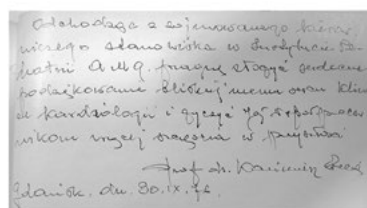 Odchodząc z zajmowanego kierow-
niczego stanowiska w Instytucie Pe-
diatrii A.M.G. pragnę złożyć serdeczne
podziękowanie bliskiej memu sercu Klini-
ce Kardiologii i życzyć Jej współpracow-
nikom więcej szczęścia w przyszłości
Prof. dr. Kazimierz
Gdańsk, dn. 30.IX.